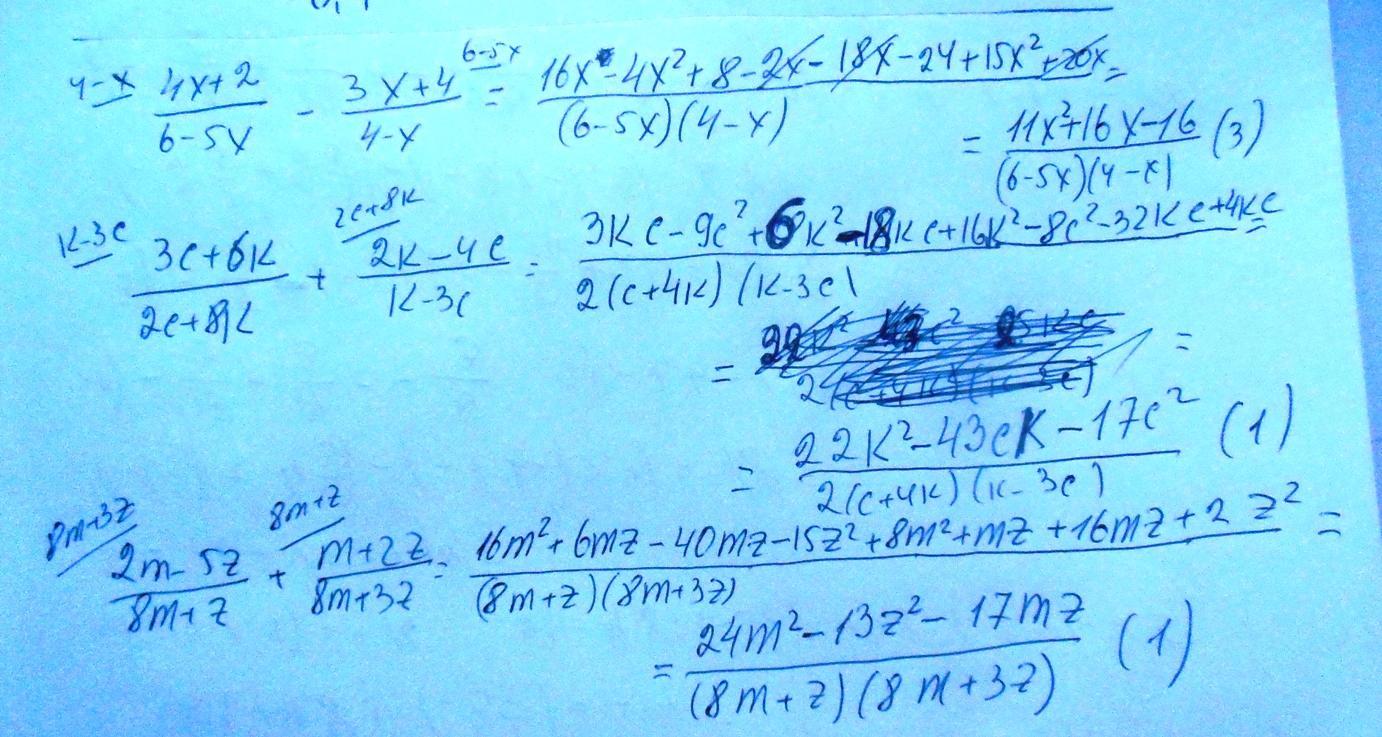 4-x (4x+2)/(6-5x) - (3x+4)/(4-x) 6-5x = (16x-4x²+8-2x-18x-24+15x²+20x)/((6-5x)(4-x)) =
= (11x²+16x-16)/((6-5x)(4-x) (3)
k-3c (3c+6k)/(2c+8k) + 2c+8k (2k-4c)/(k-3c) = (3kc-9c²+6k²-18kc+16k²-8c²-32kc+4kc)/(2(c+4k)(k-3c) =
= =
= (22k²-43ck-17c²)/(2(c+4k)(k-3c)) (1)
8m+3z (2m-5z)/(8m+z) + 8m+z (m+2z)/(8m+3z) = (16m²+6mz-40mz-15z²+8m²+mz+16mz+2z²)/((8m+z)(8m+3z)) =
= (24m²-13z²-17mz)/((8m+z)(8m+3z)) (1)